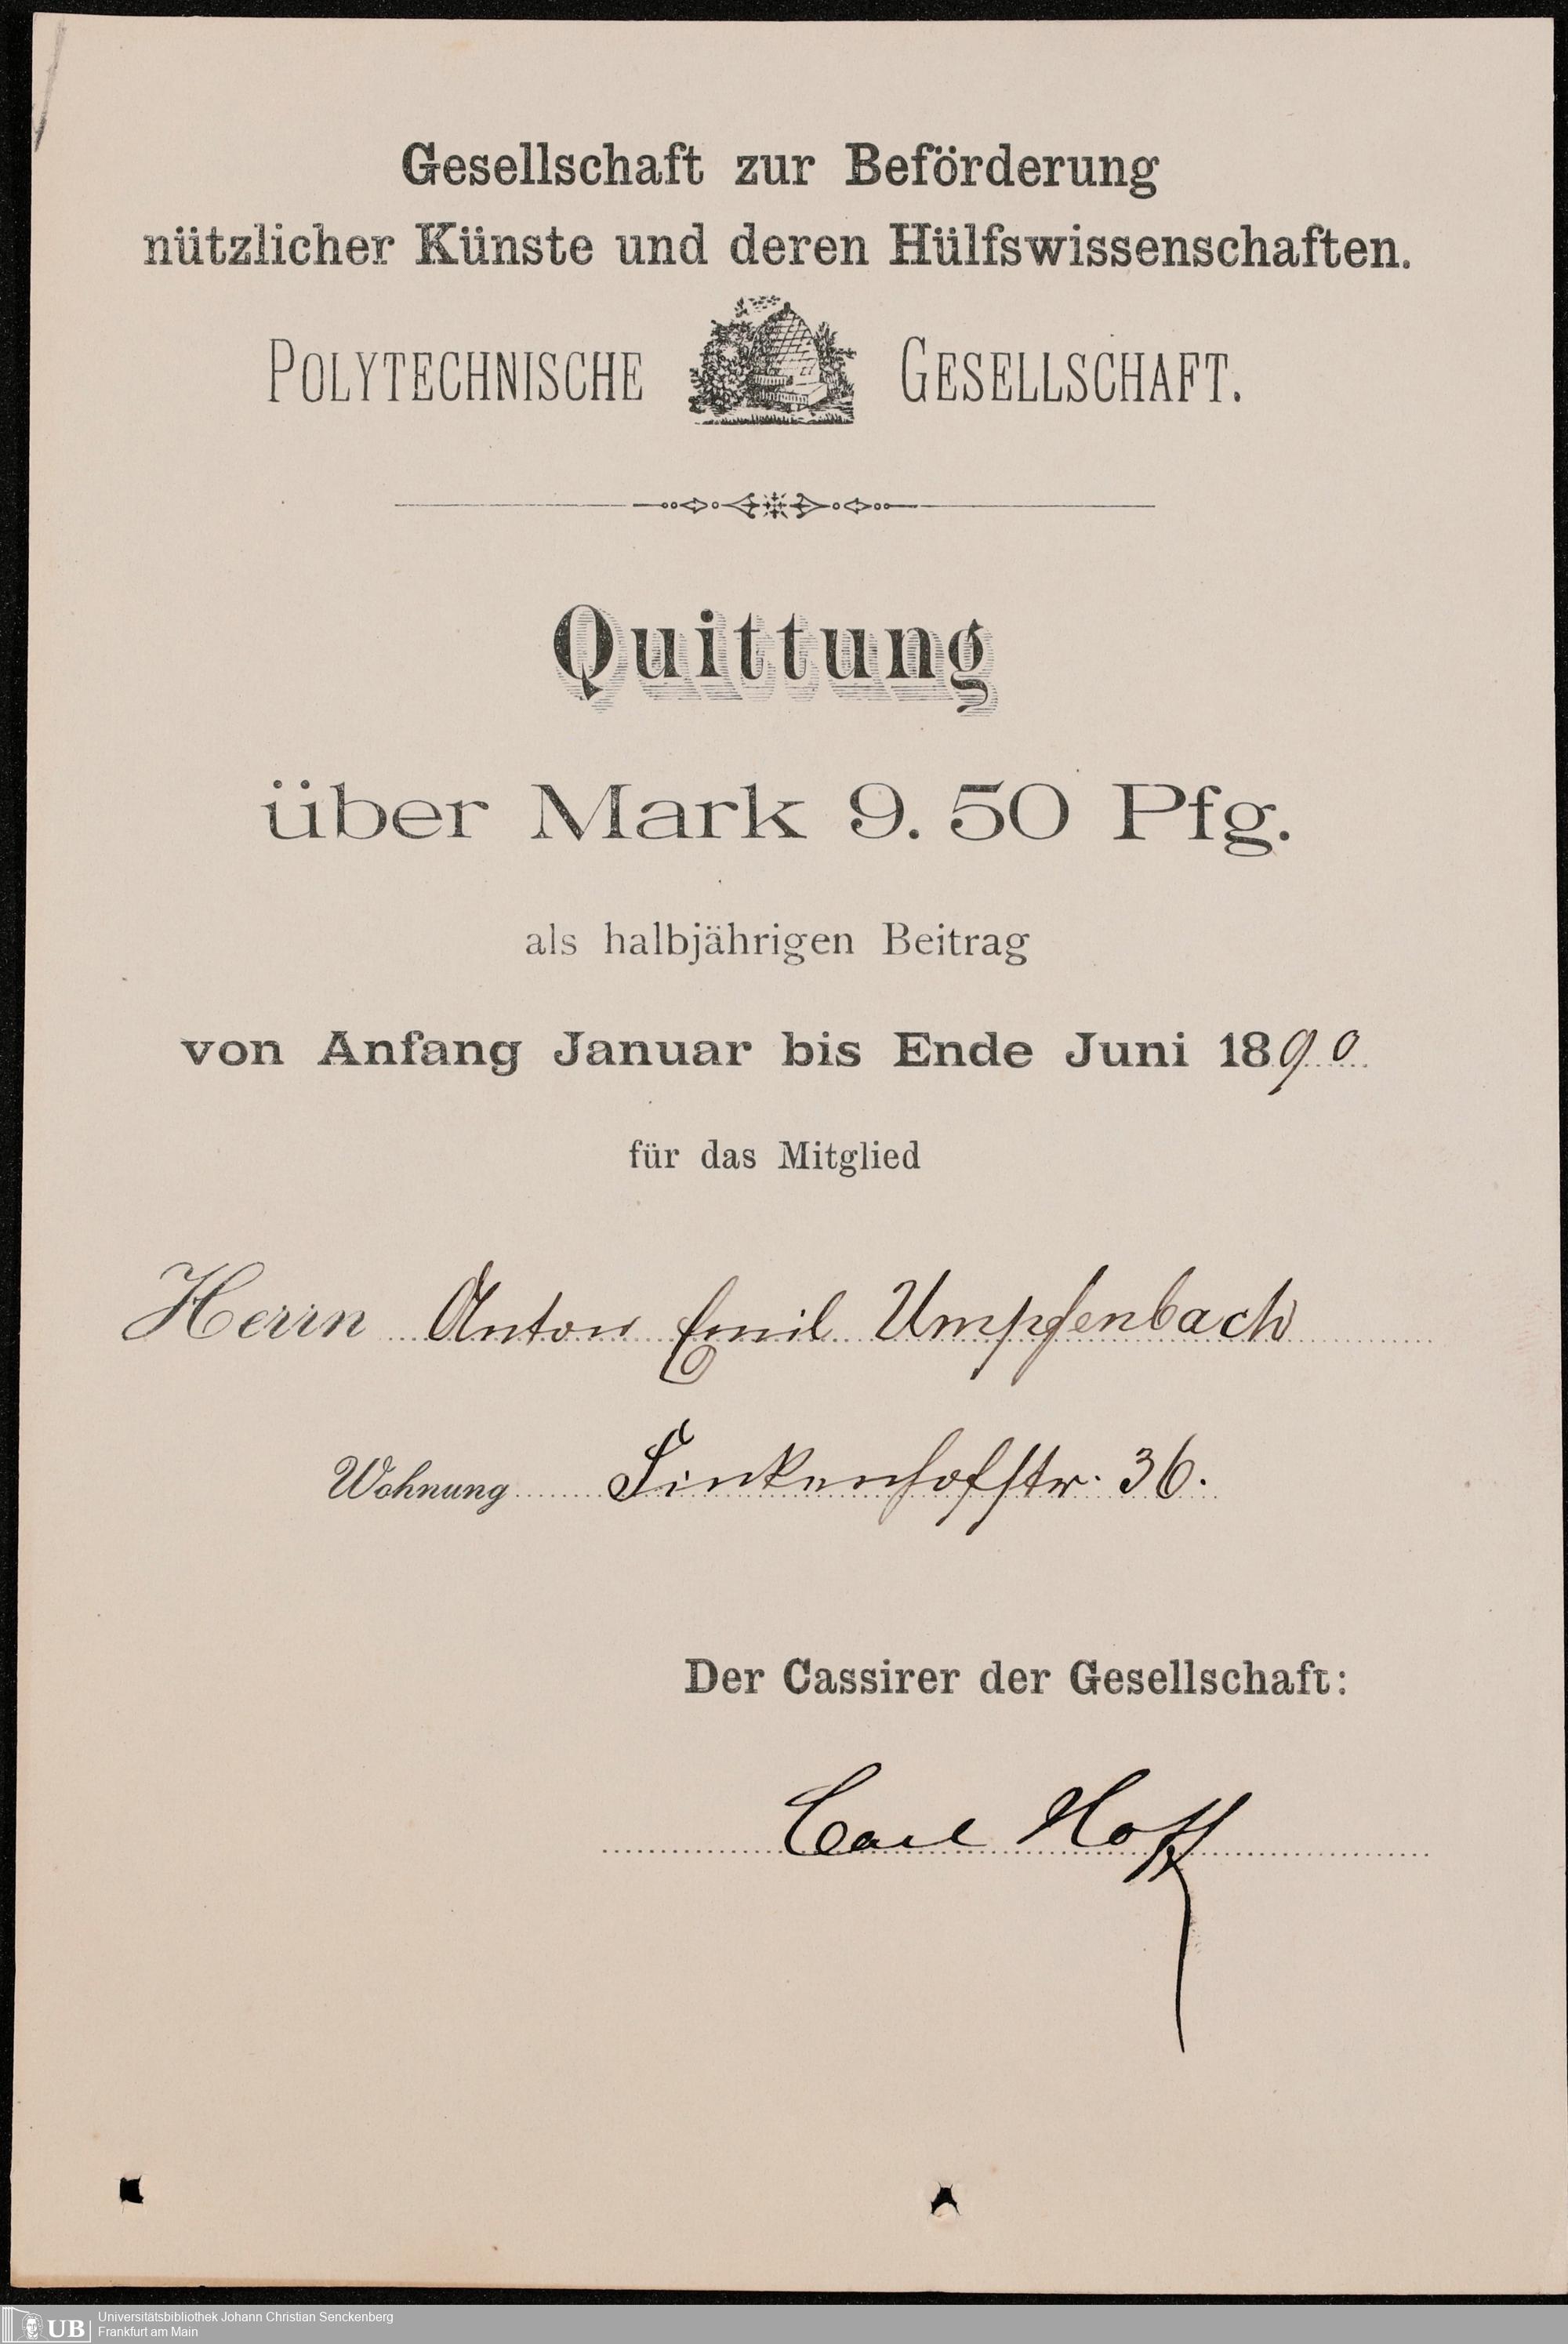 Gesellschaft zur Beförderung
nützlicher Künste und deren Hülfswissenschaften.
POLYTECHNISCHE GESELLSCHAFT.
Quittung
über Mark 9. 50 Pfg.
als halbjährigen Beitrag
von Anfang Januar bis Ende Juni 1890
für das Mitglied
Herrn Anton Emil Umpfenbach
Wohnung Finkenhofstr. 36.
Der Cassirer der Gesellschaft:
Carl Hoff
UB
Universitätsbibliothek Johann Christian Senckenberg
Frankfurt am Main